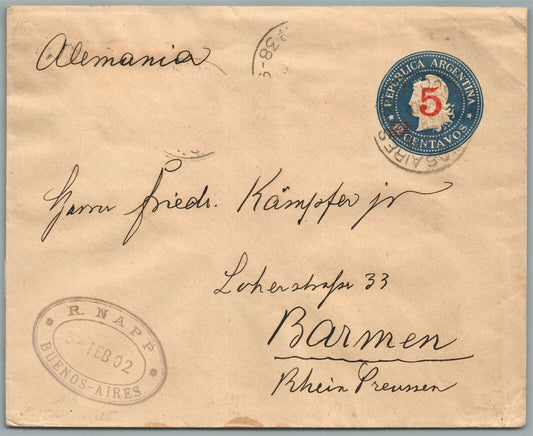 Alemania
REPÚBLICA ARGENTINA
5
CENTAVOS
OS AIRES
Herrn Friedr. Kämpfer jr
Loherstraße 33
Barmen
Rhein Preussen
R. NAPP
FEB 02
BUENOS-AIRES